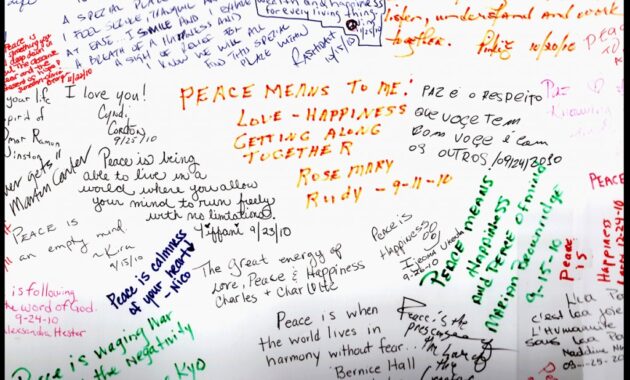 A SPECIAL PLACE
I FEEL SERENE, TRANQUIL AND
AT EASE... I SMILE AND
A BREATH OF HAPPINESS AND
A SIGH OF RELIEF FOR ALL
KNOW WE WILL ALL
FIND THIS SPECIAL
PLACE WITHIN
and happiness
for every living thing.
10/15/10
listen, understand and work
together.
10/20/10
Peace is
something
deep
11/22/10
your life
spirit of
Omar Ramon
Winston
I love you!
Cyndi
GORDON
9/25/10
PEACE MEANS TO ME:
LOVE - HAPPINESS
GETTING ALONG
TOGETHER
ROSE MARY
Rudy - 9-11-10
PAZ É O RESPEITO
QUE VOÇE TEM
COM VOÇE E COM
OS OUTROS /09/24/2010
Paz
knowing
Martin Carter
Peace is being
able to live in a
world where you allow
your mind to run freely
with no limitations.
Tiffani 9/23/10
PEACE IS
an empty mind
~Kira
9/15/10
Peace is calmness
of your heart
-Nico
The Great energy of
Love, Peace & Happiness
Charles + Charlotte
Peace is
Happiness
Ijeoma
9-26-10
PEACE MEANS
Happiness
and Peace of mind
MARION Brownridge
9-15-10
Peace
is
PEACE
Happiness
is following
the word of God.
9-24-10
Alexsandra Hester
Peace is waging war
the Negativity
Kyo
Peace is when
the world lives in
harmony without fear...
Bernice Hall
Peace is the
presence
of
the
c'est la joie
L'Humanité
sans
Madeline
09-25-20